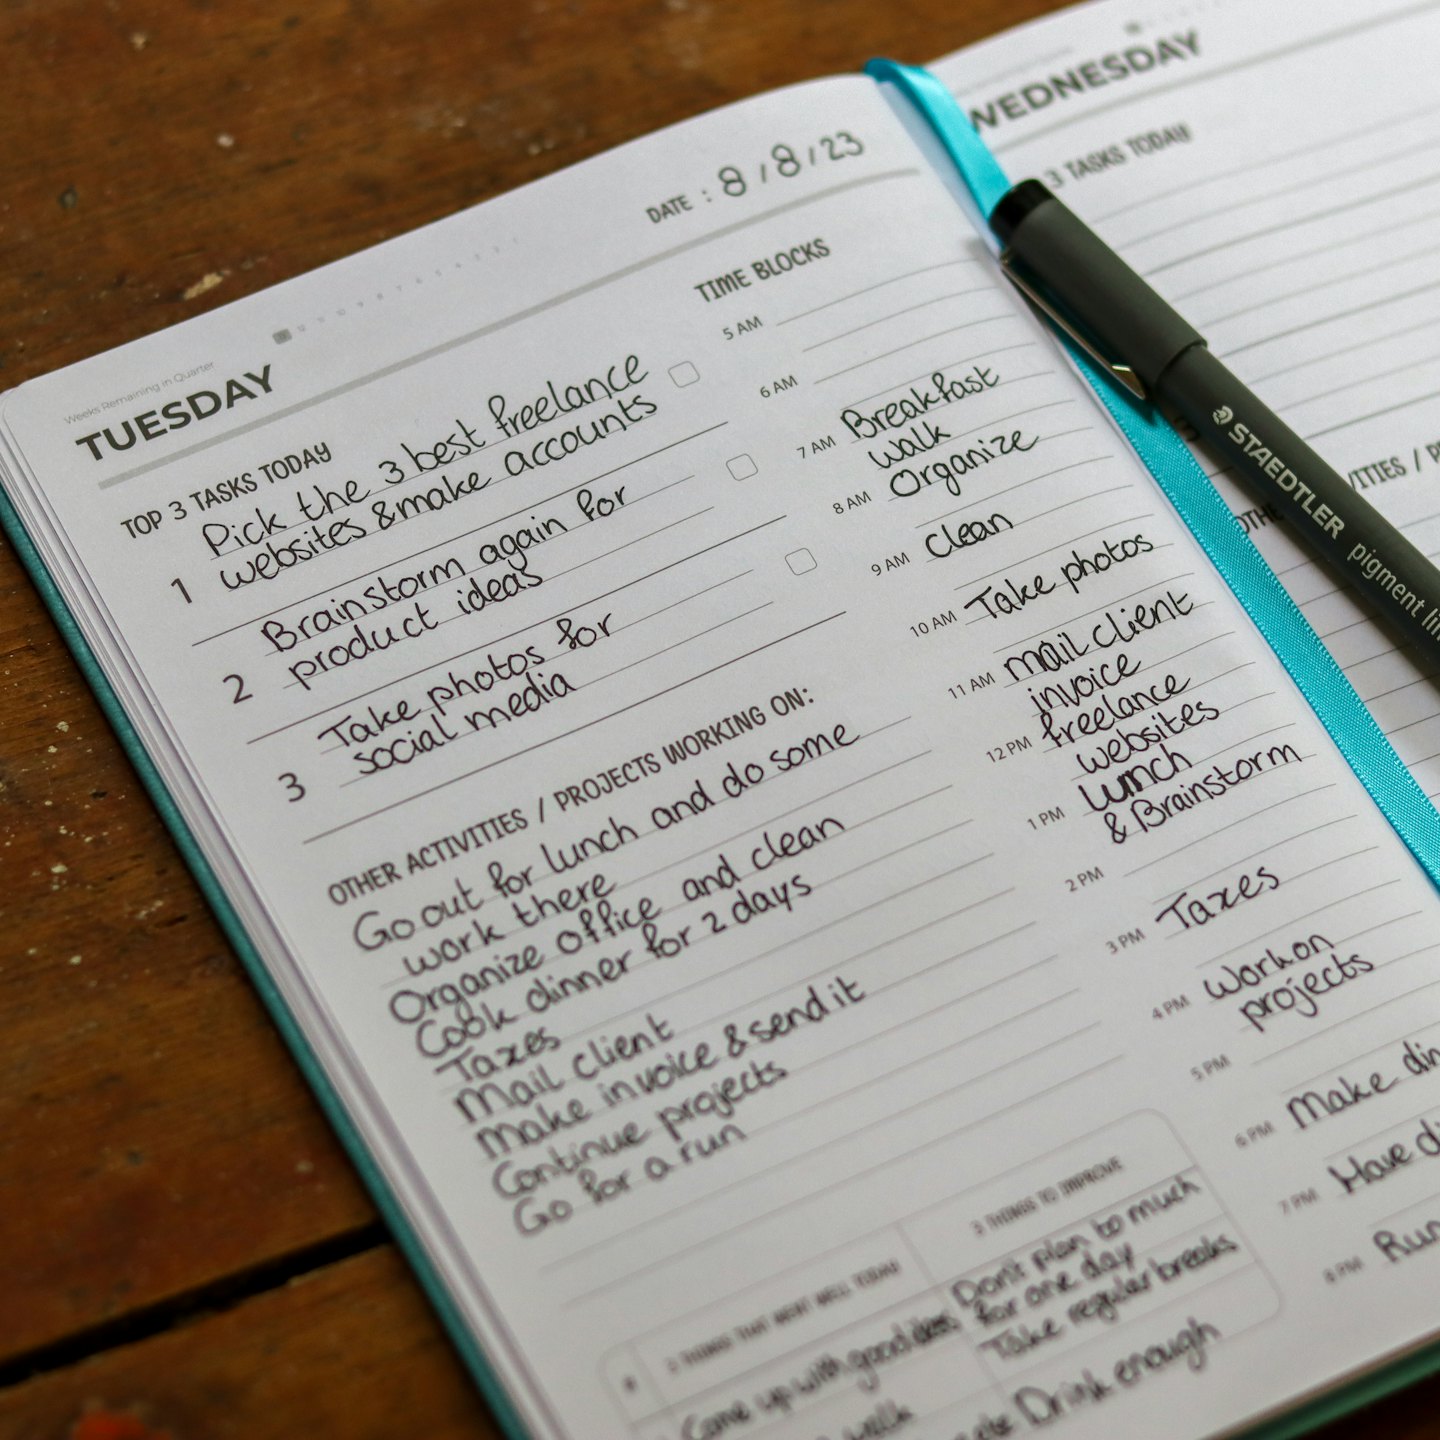 Weeks Remaining in Quarter
TUESDAY
DATE : 8/8/23
TOP 3 TASKS TODAY
1 Pick the 3 best freelance
websites & make accounts
2 Brainstorm again for
product ideas
3 Take photos for
social media
OTHER ACTIVITIES / PROJECTS WORKING ON:
Go out for lunch and do some
work there
Organize office and clean
Cook dinner for 2 days
Taxes
Mail client
Make invoice & send it
Continue projects
Go for a run
TIME BLOCKS
5 AM
6 AM
7 AM Breakfast
walk
8 AM Organize
9 AM Clean
10 AM Take photos
11 AM mail client
invoice
12 PM freelance
websites
1 PM lunch
& Brainstorm
2 PM
3 PM Taxes
4 PM Work on
projects
5 PM
6 PM Make din
7 PM Have di
8 PM Run
3 THINGS THAT WENT WELL TODAY
Come up with good ideas
walk
3 THINGS TO IMPROVE
Don't plan to much
for one day
Take regular breaks
Drink enough
WEDNESDAY
3 TASKS TODAY
3
OTHE
VITIES / P
STAEDTLER pigment lin